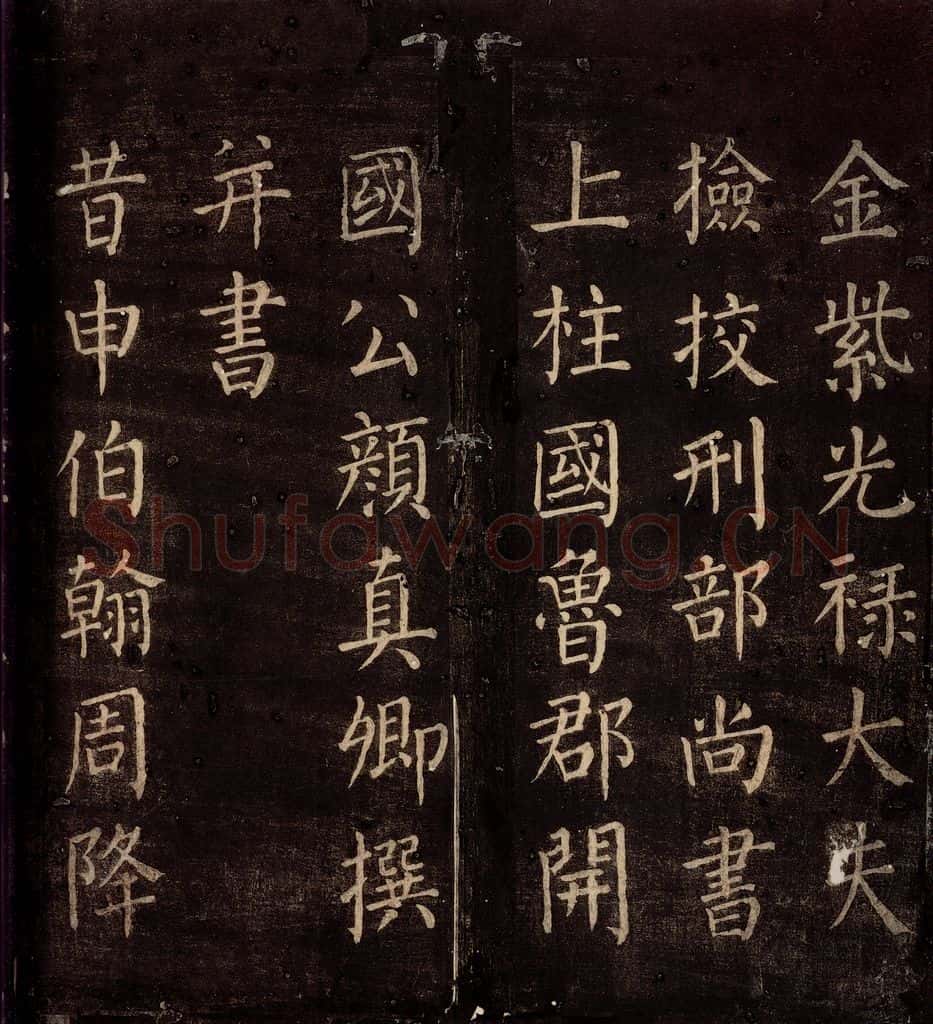 金紫光禄大夫
撿挍刑部尚書
上柱國魯郡開
國公顔真卿撰
并書
昔申伯翰周降
Shufawang.CN